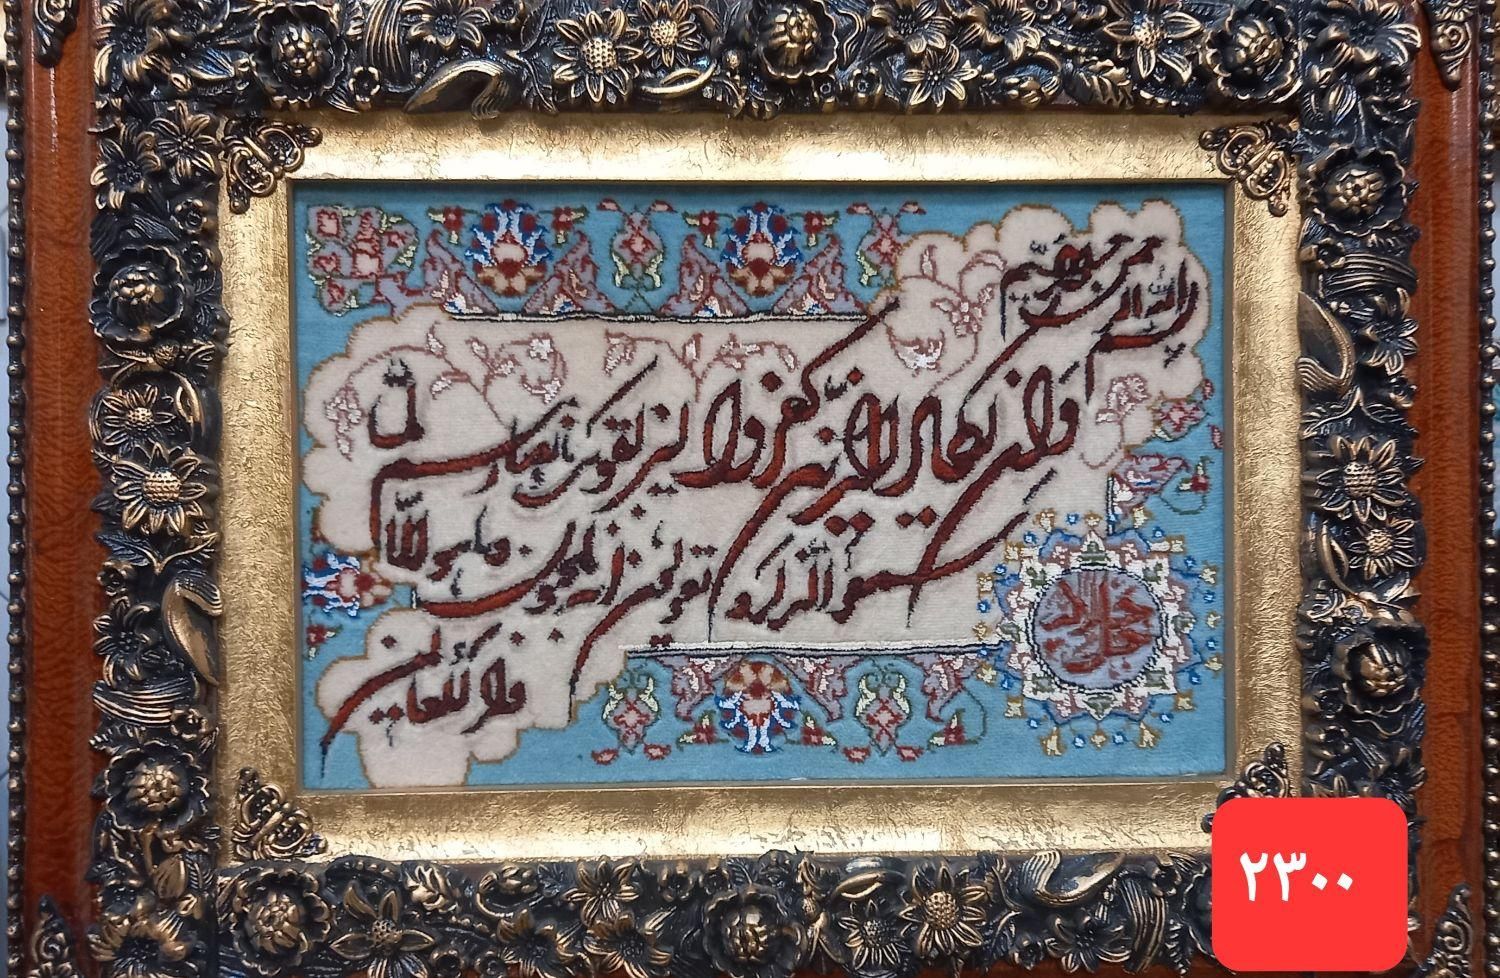 بسم الله الرحمن الرحیم
وان یکاد الذین کفروا لیزلقونک بابصارهم لما
سمعوا الذکر و یقولون انه لمجنون و ما هو الا
ذکر للعالمین
۲۳۰۰